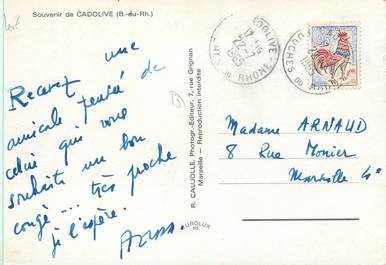 Souvenir de CADOLIVE (B.-du-Rh.)
Recevez une
amicale pensée de
celui qui vous
souhaite un bon
congé... très proche
j'espère.
R. CAUJOLLE, Photogr.-Editeur, 7, rue Grignan
Marseille - Reproduction interdite
CADOLIVE
22-7
1965
BOUCHES DU RHONE
Madame ARNAUD
8 Rue Monier
Marseille 4e